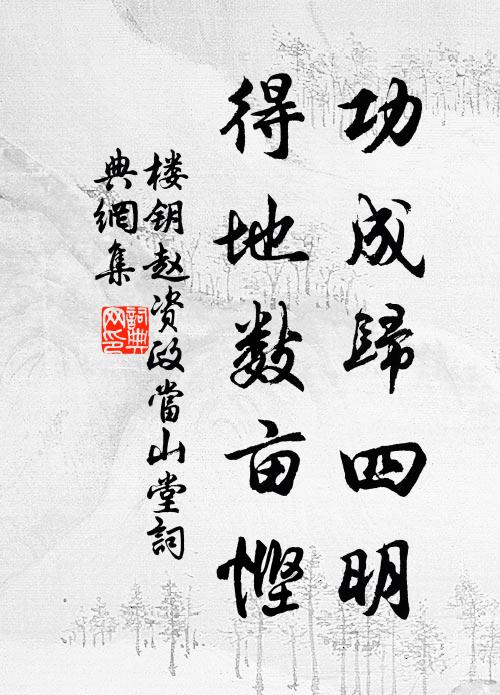 功成歸四明
得地数亩慳
楼钥赵资政當山堂詞
典網集
詞典
网印